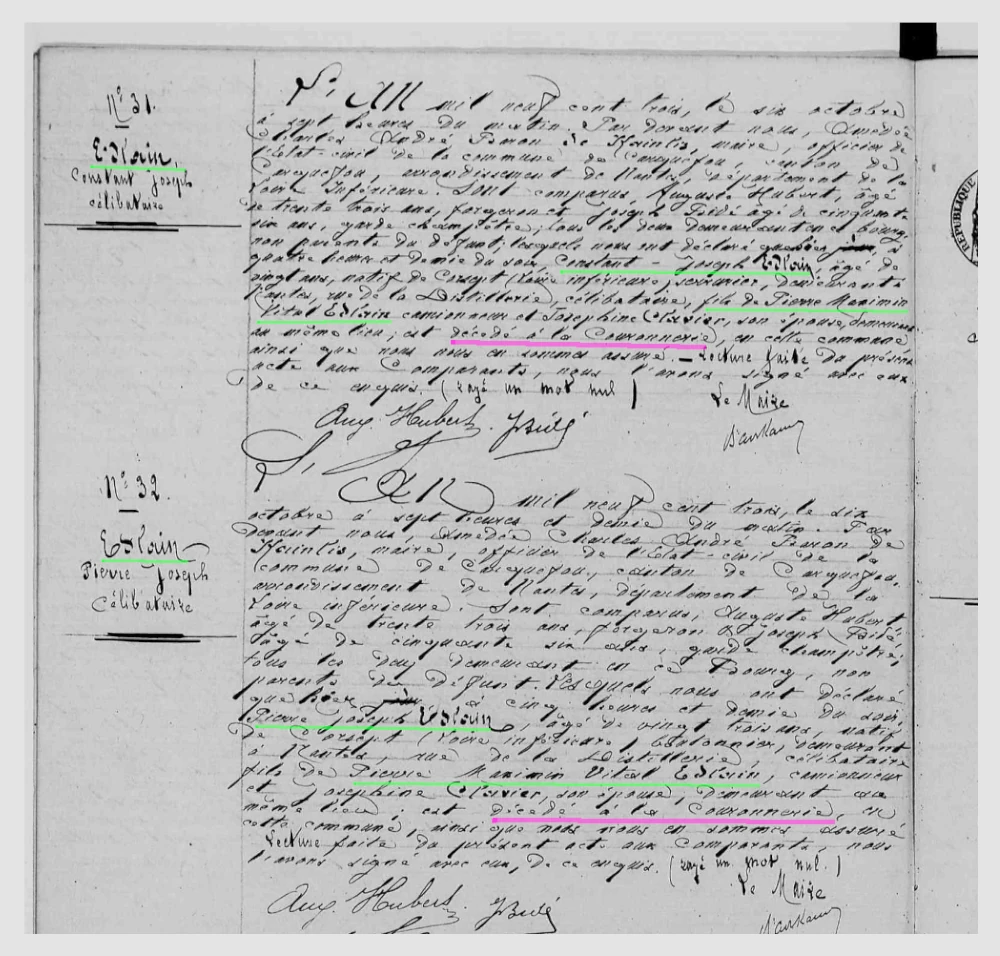 N° 31.
Edlain,
Constant Joseph
célibataire
L'AN mil neuf cent trois, le six octobre
à sept heures du matin. Par devant nous, Amédée
Charles André Baron de Hainlis, maire, officier de
l'Etat-civil de la commune de Carquefou, canton de
Carquefou, arrondissement de Nantes, département de la
Loire Inférieure. Sont comparus, Auguste Hubert, âgé
de trente trois ans, forgeron et Joseph âgé de cinquante
six ans, garde champêtre; tous les deux demeurant en ce bourg,
non parents du défunt; lesquels nous ont déclaré que hier à
quatre heures et demie du soir, Constant-Joseph Edlain, âgé de
vingt ans, natif de Corsept (Loire inférieure) serrurier, demeurant à
Nantes, rue de la Distillerie, célibataire, fils de Pierre Maximin
Vital Edlain camionneur et Josephine Clavier, son épouse, demeurant
au même lieu; est décédé à la Couronnerie, en cette commune
ainsi que nous nous en sommes assuré. — Lecture faite du présent
acte aux Comparants, nous l'avons signé avec eux
de ce enquis. (rayé un mot nul)
Le Maire
Aug. Hubert.
N° 32.
Edlain
Pierre Joseph
Célibataire
L'AN mil neuf cent trois, le six
octobre à sept heures et demie du matin. Par
devant nous, Amédée Charles André Baron de
Hainlis, maire, officier de l'Etat-civil de la
commune de Carquefou, canton de Carquefou,
arrondissement de Nantes, département de la
Loire inférieure. Sont comparus, Auguste Hubert
âgé de trente trois ans, forgeron & Joseph
âgé de cinquante six ans, garde champêtre;
tous les deux demeurant en ce Bourg, non
parents du défunt. Lesquels nous ont déclaré
que hier à cinq heures et demie du soir,
Pierre Joseph Edlain, âgé de vingt trois ans, natif
de Corsept (Loire inférieure) cantonnier, demeurant
à Nantes, rue de la Distillerie, célibataire
fils de Pierre Maximin Vital Edlain, camionneur
et Josephine Clavier, son épouse, demeurant au
même lieu, est décédé à la Couronnerie, en
cette commune, ainsi que nous nous en sommes assuré
Lecture faite du présent acte aux Comparants, nous
l'avons signé avec eux, de ce enquis. (rayé un mot nul.)
Le Maire
Aug. Hubert.
RÉPUBLIQUE